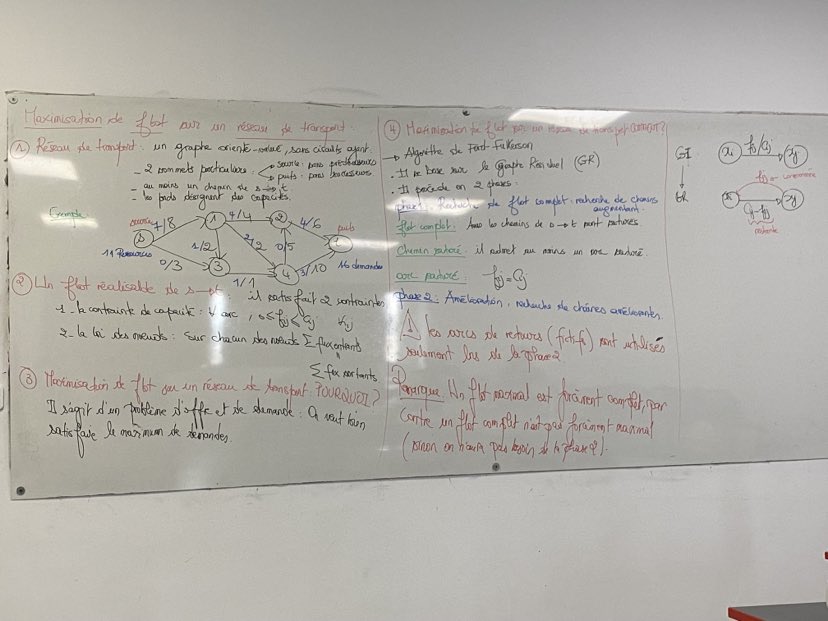 Maximisation de flot sur un réseau de transport.
① Réseau de transport : un graphe orienté-valué, sans circuits ayant.
- 2 sommets particuliers : source : sans prédécesseurs
puits : sans successeurs
- au moins un chemin de s → t
- les poids désignent des capacités.
Exemple
source
7/8
1
4/4
2
4/6
puits
s
1/2
2/2
0/5
t
11 Ressources
0/3
3
1/1
4
3/10
16 demandes
② Un flot réalisable de s → t : il satisfait 2 contraintes
1 - la contrainte de capacité : ∀ arc, 0 ≤ fij ≤ Cij ∀ij
2 - la loi des nœuds : sur chacun des nœuds Σ flux entrants
=
Σ flux sortants
③ Maximisation de flot sur un réseau de transport POURQUOI ?
Il s'agit d'un problème d'offre et de demande : On veut bien
satisfaire le maximum de demandes.
④ Maximisation de flot sur un réseau de transport COMMENT ?
→ Algorithme de Ford Fulkerson
. Il se base sur le graphe Résiduel (GR)
. Il procède en 2 phases :
phase 1 : Recherche de flot complet : recherche de chemins
augmentant.
flot complet : tous les chemins de s → t sont saturés
chemin saturé : il admet au moins un arc saturé.
arc saturé : fij = Cij
phase 2 : Amélioration, recherche de chaînes améliorantes.
les arcs de retours (fictifs) sont utilisés
seulement lors de la phase 2.
Remarque : Un flot maximal est forcément complet, par
contre un flot complet n'est pas forcément maximal
(sinon on n'aura pas besoin de la phase 2).
GI
xi
fij/Cij
xj
↓
GR
fij
xi
xj
Cij - fij